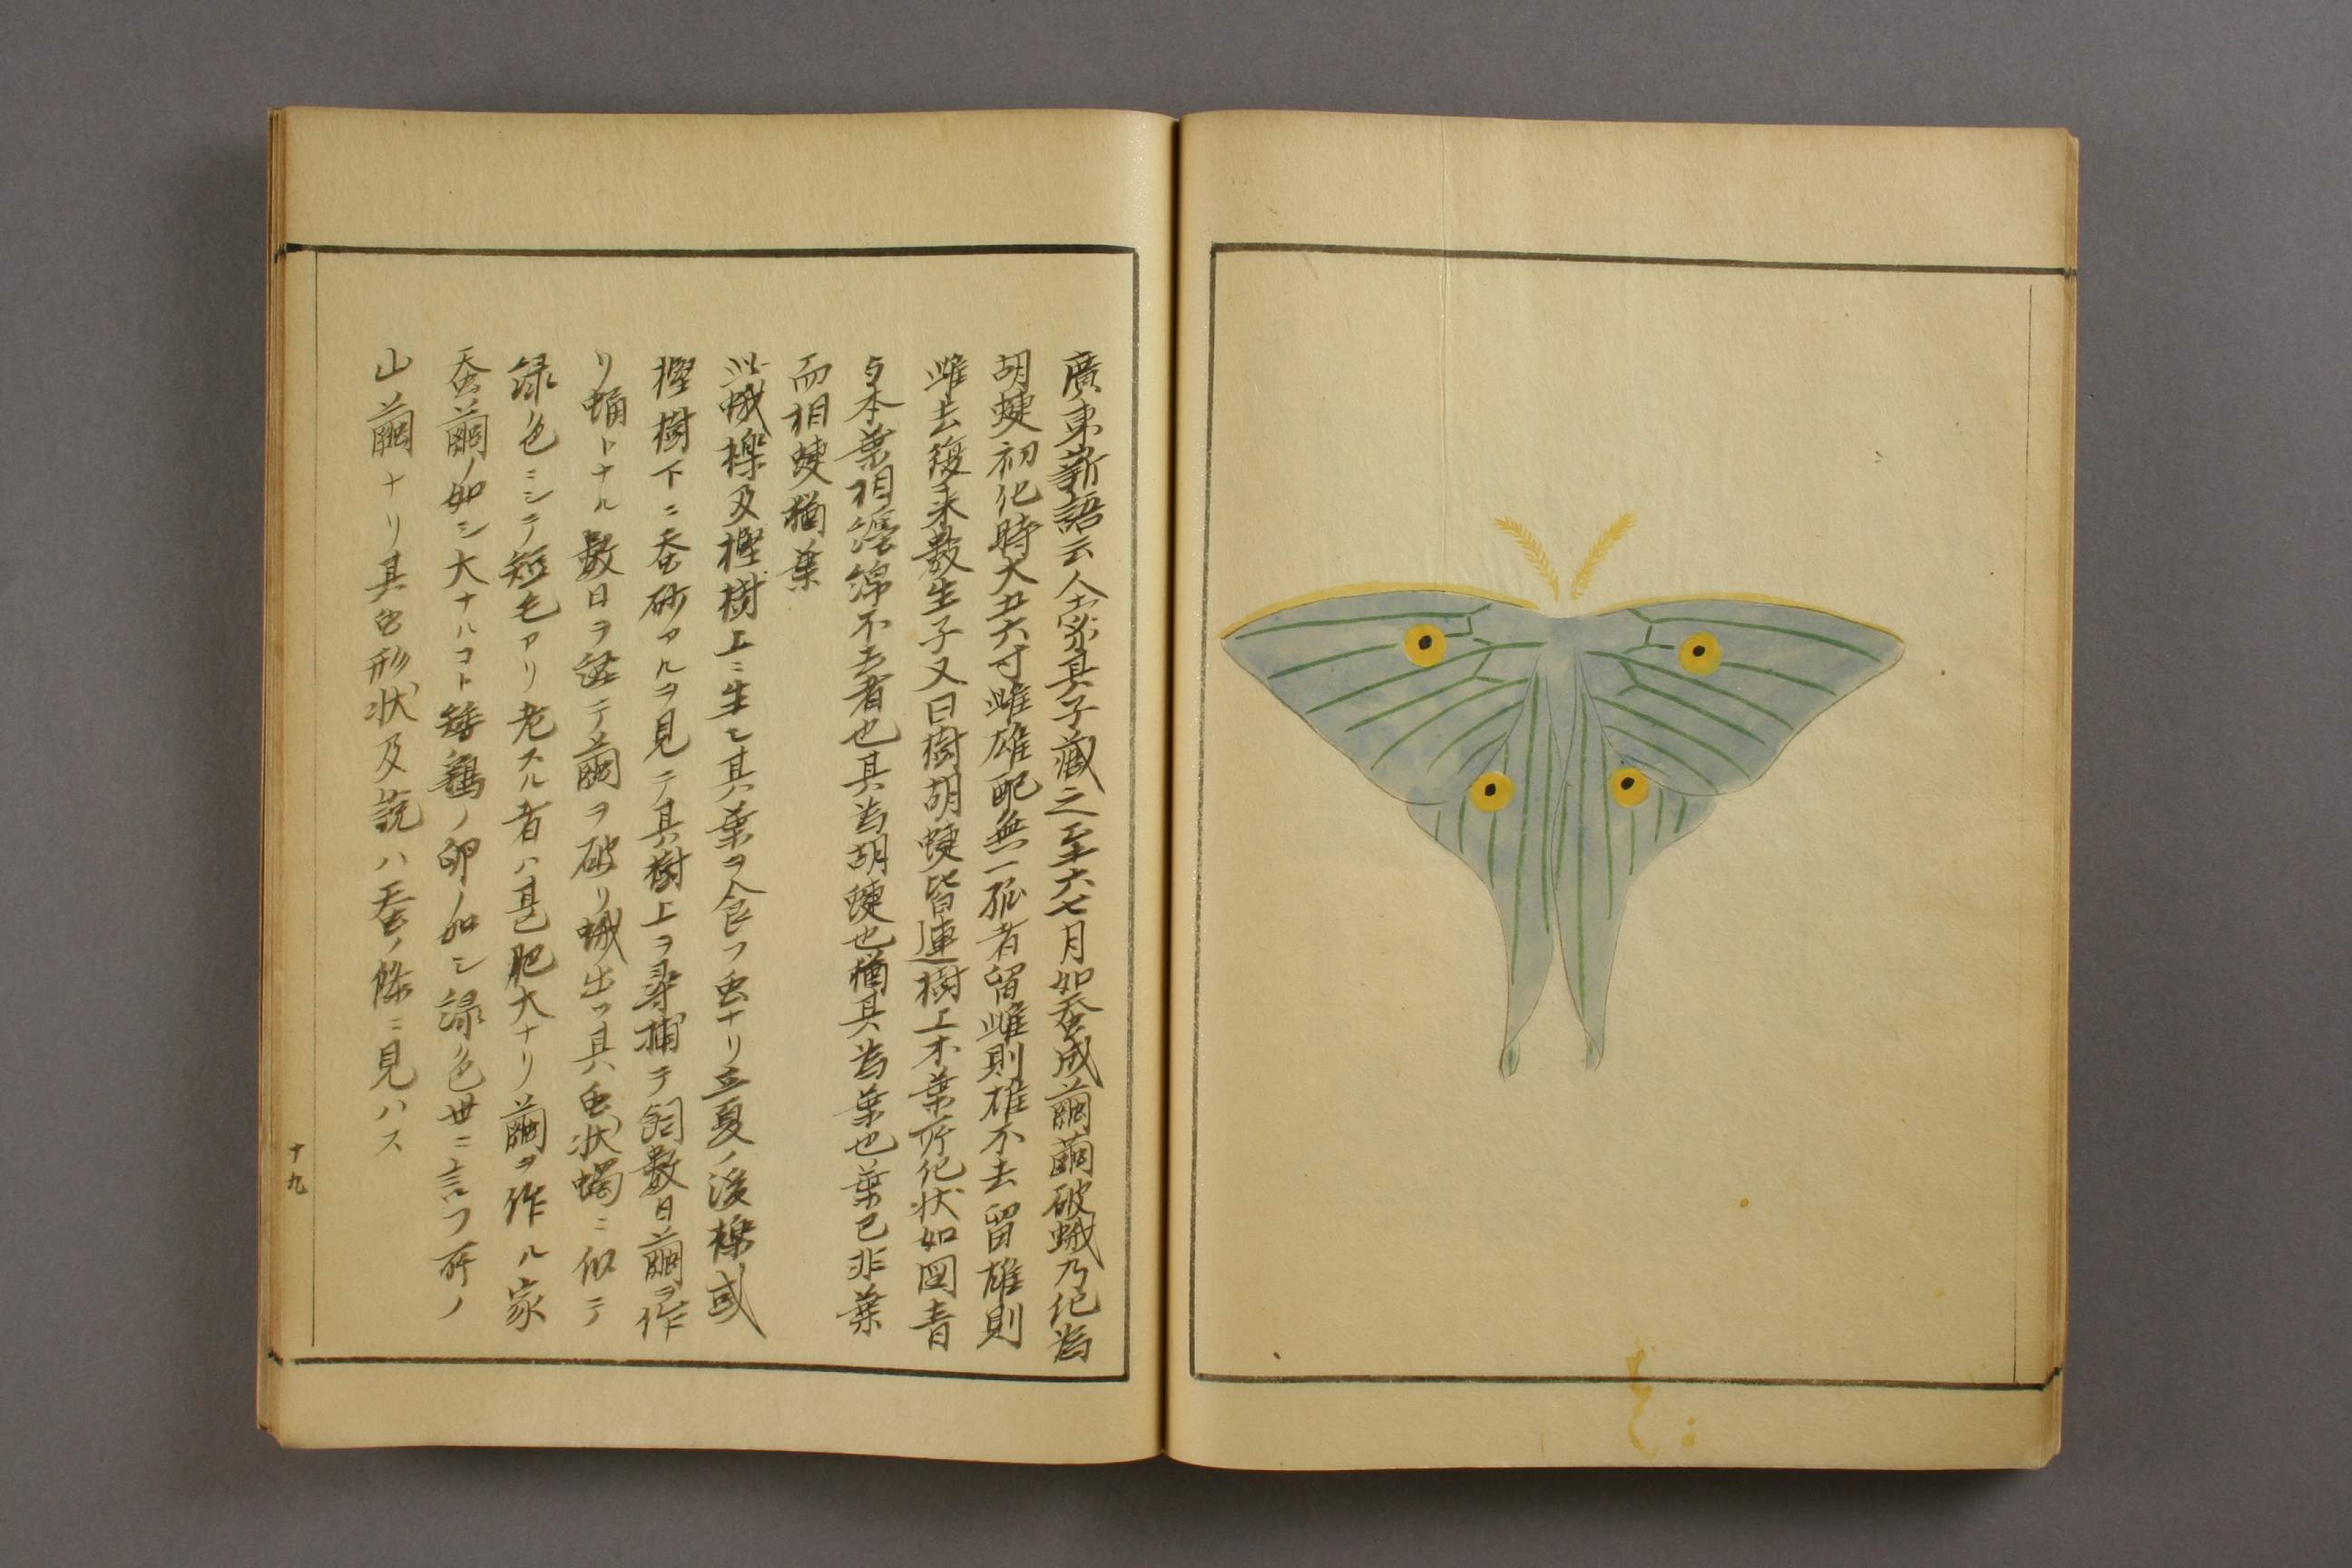 廣東新語云人家其子藏之至六七月如蚕成繭繭破蛾乃化為
胡蝶初化時大五六寸雌雄配無一孤者留雌則雄不去留雄則
雌去復来数生子又曰樹胡蝶皆連樹上木葉所化状如図青
与木葉相淫綿不去者也其為胡蝶也猶其為葉也葉已非葉
而相蝶猶葉
此蛾櫟及樫樹上ニ生シ其葉ヲ食フ虫ナリ立夏ノ後櫟或
樫樹下ニ蚕砂アルヲ見テ其樹上ヲ尋捕テ飼数日繭ヲ作
リ蛹トナル数日ヲ送テ繭ヲ破リ蛾出ツ其虫状蠋ニ似テ
緑色ニシテ短毛アリ老スル者ハ甚肥大ナリ繭ヲ作ル家
蚕繭ノ如シ大ナルコト矮鶏ノ卵ノ如シ緑色世ニ言フ所ノ
山繭ナリ其虫形状及説ハ蚕ノ條ニ見ハス
十九